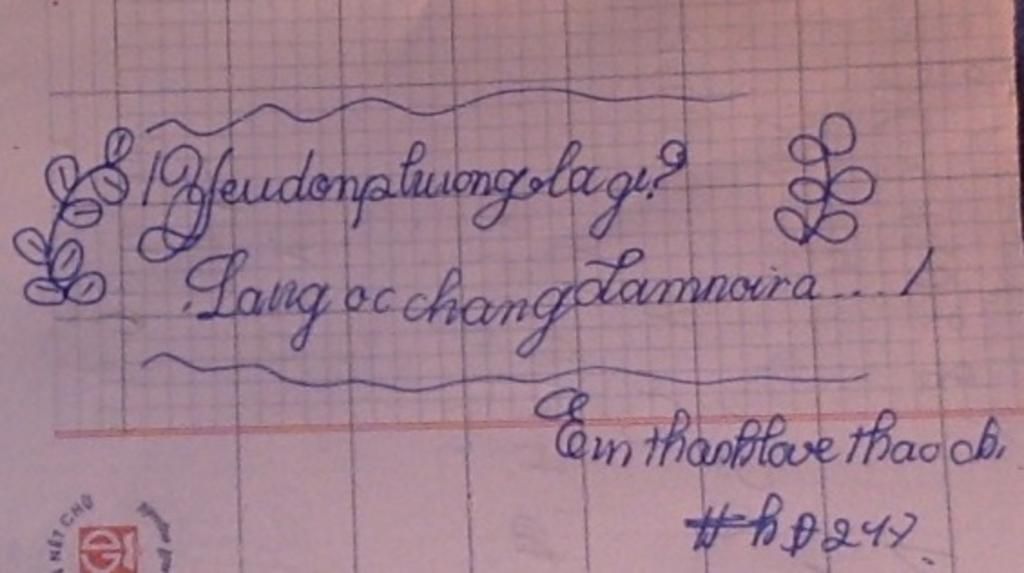 Yeu don phuong la gi?
La ng oc chang dam noi ra..../
Em thanh love thao cb.
NÉT CHỮ